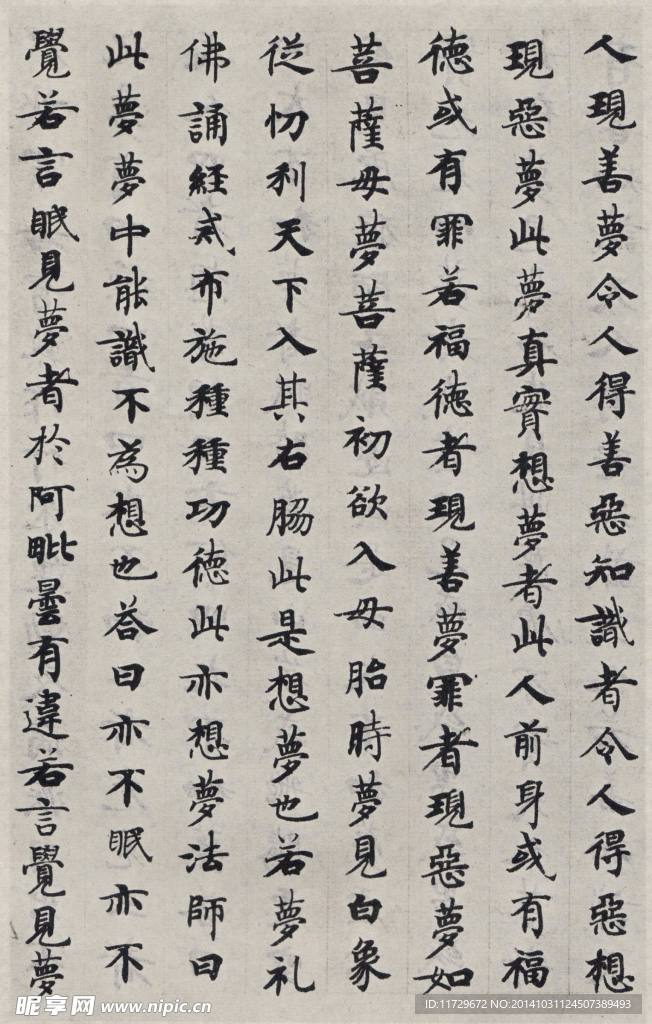 人現善夢令人得善惡知識者令人得惡想
現惡夢此夢真實想夢者此人前身或有福
德或有罪若福德者現善夢罪者現惡夢如
菩薩母夢菩薩初欲入母胎時夢見白象
從忉利天下入其右脇此是想夢也若夢礼
佛誦經貳布施種種功德此亦想夢法師曰
此夢夢中能識不為想也答曰亦不眠亦不
覺若言眠見夢者於阿毗曇有違若言覺見夢
昵享网 www.nipic.cn
ID:11729672 NO:20141031124507389493